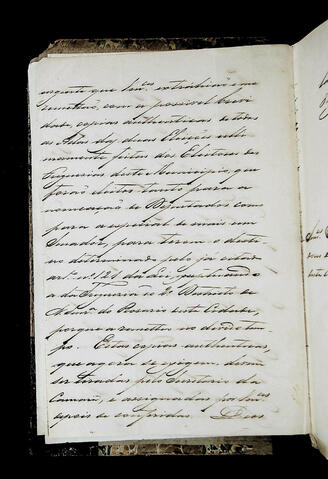 que VM.ces extrahirão, e me
remettão, com a possivel brevi
dade, copias authenticas de todas
as Actas das duas Eleições ulti
mamente feitas dos Eleitores das
Freguezias deste Municipio, que
forão eleitos tanto para a
nomeação de Deputados como
para a especial de mais um
Senador, para terem o desti
no determinado pelo já citado
art.º n.º 121 da Lei,
a da Freguezia de
Senr.ª do Rosario desta Cidade,
porque a remetteo no devido tem
po. Estas copias authenticas,
que agora se exigem, devem
ser tiradas pelo Secretario da
Camara, e assignadas por VM.ces
depois de conferidas. Deos